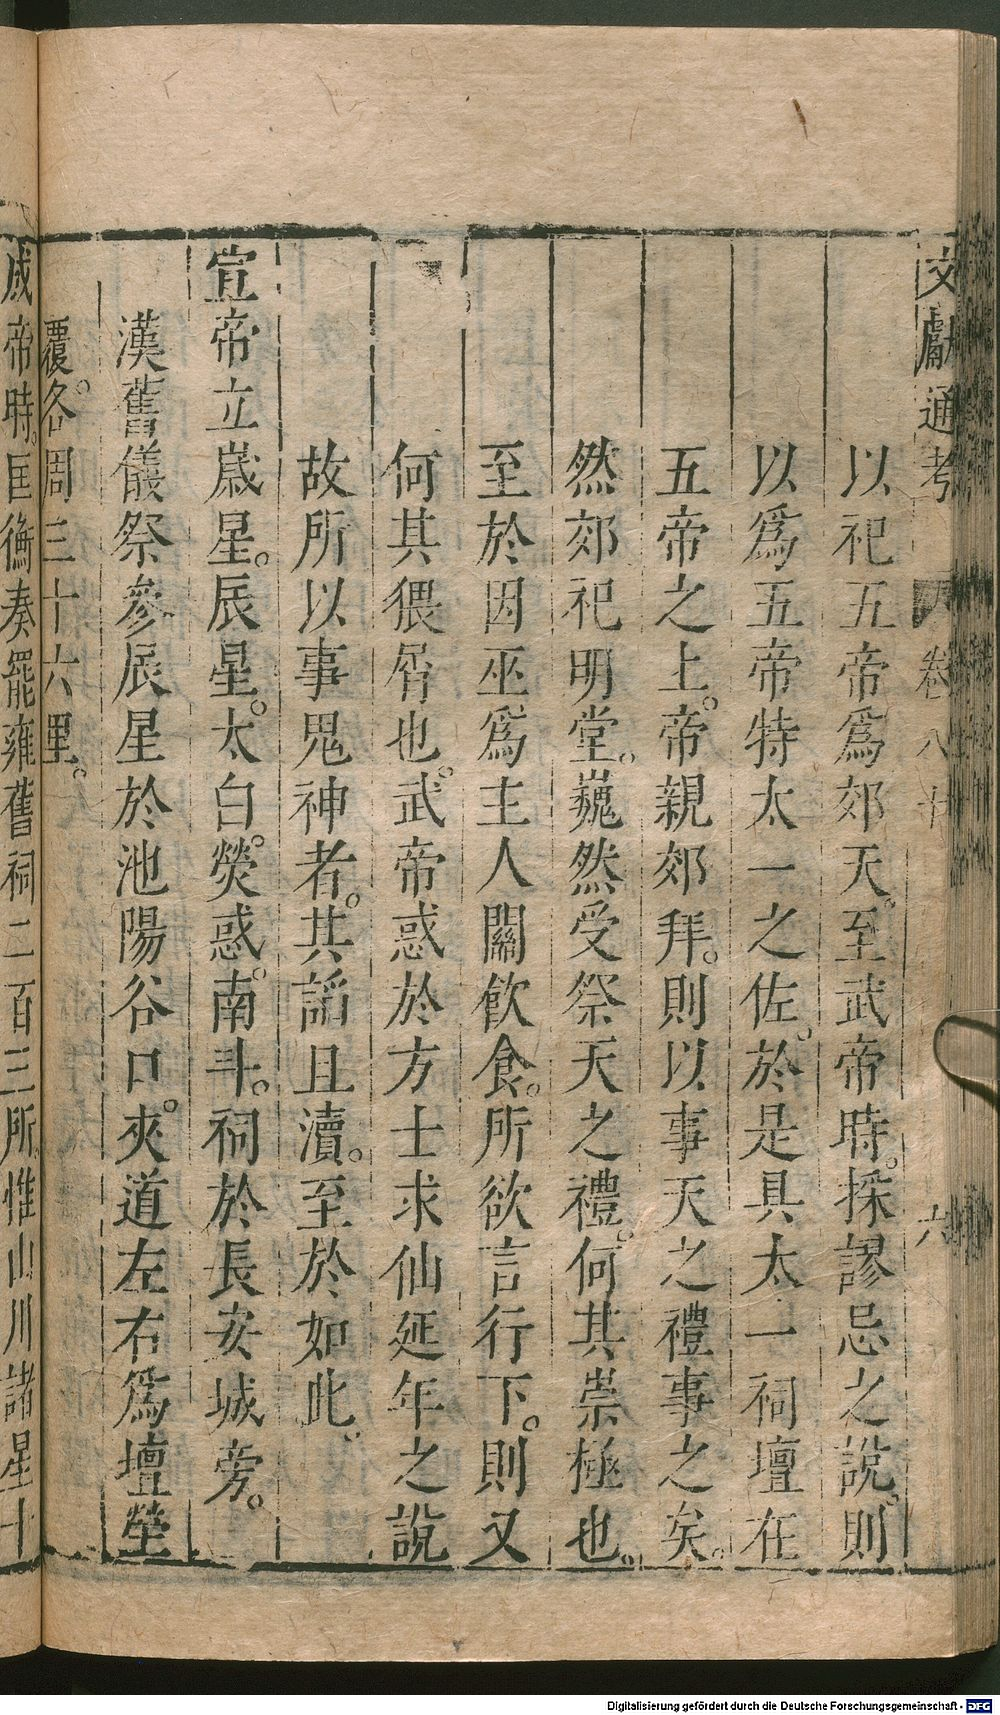 文獻通考 卷八十 六
以祀五帝爲郊天。至武帝時。採謬忌之說。則
以爲五帝特太一之佐。於是具太一祠壇在
五帝之上。帝親郊拜。則以事天之禮事之矣。
然郊祀明堂。巍然受祭天之禮。何其崇極也。
至於因巫爲主人關飲食。所欲言行下。則又
何其猥屑也。武帝惑於方士求仙延年之說
故所以事鬼神者。其謟且瀆。至於如此。
宣帝立歲星。辰星。太白。熒惑。南斗。祠於長安城旁。
漢舊儀祭參辰星於池陽谷口。夾道左右爲壇塋
覆。各周三十六里。
成帝時。匡衡奏罷雍舊祠二百三所惟山川諸星十
Digitalisierung gefördert durch die Deutsche Forschungsgemeinschaft - DFG